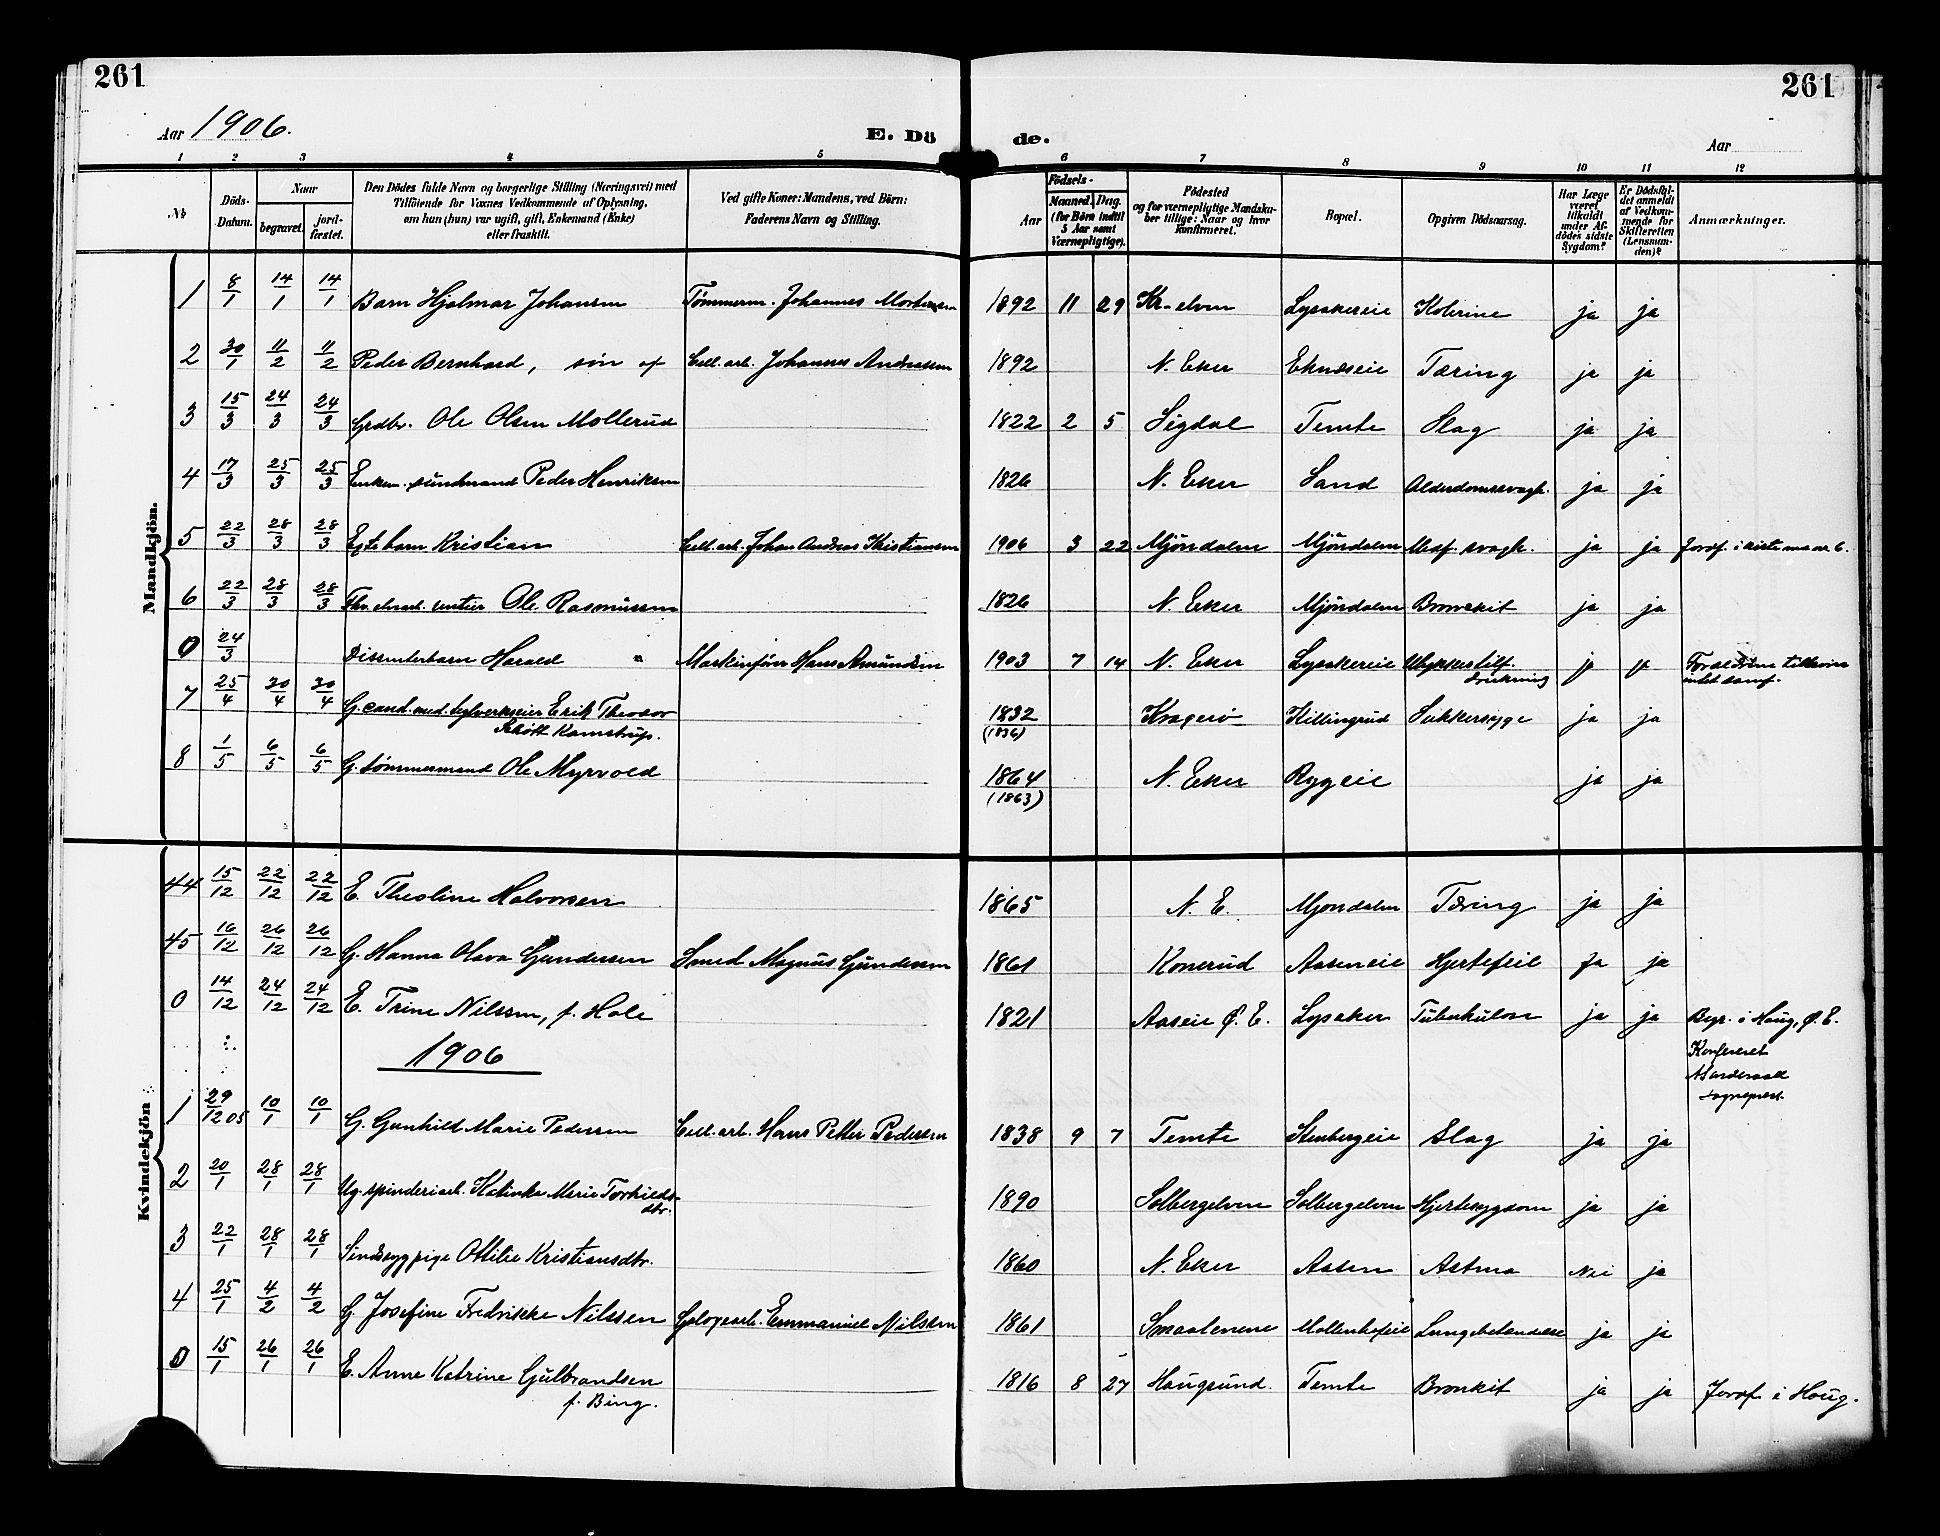 261
261
Aar 1906.
E. Dö
de.
Aar
1 2 3 4 5 6 7 8 9 10 11 12
№
Döds-Datum.
Naar
begravet.
jord-fæstet.
Den Dödes fulde Navn og borgerlige Stilling (Næringsvei) med
Tilföiende for Voxnes Vedkommende af Oplysning,
om han (hun) var ugift, gift, Enkemand (Enke)
eller fraskilt.
Ved gifte Koner: Mandens, ved Börn:
Faderens Navn og Stilling.
Födsels-
Aar
Maaned. Dag.
(for Börn indtil
5 Aar samt
Værnepligtige).
Födested
og for værnepligtige Mandska-
ber tillige: Naar og hvor
konfirmeret.
Bopæl.
Opgiven Dödsaarsag.
Har Læge
været
tilkaldt
under Af-
dödes sidste
Sygdom?
Er Dödsfal-
det anmeldt
af Vedkom-
mende for
Skifteretten
(Lensman-
den)?
Anmærkninger.
Mandkjön.
1 8/1 14/1 14/1 Barn Hjalmar Johansen Tømmerm. Johannes Mortensen 1892 11 29 Kr-elven Lysakereie Kolerine ja ja
2 30/1 11/2 11/2 Peder Bernhard, søn af Cell. arb. Johannes Andreassen 1892 N. Eker Eknæseie Tæring ja ja
3 15/3 24/3 24/3 Grdbr. Ole Olsen Møllerud 1822 2 5 Sigdal Temte Slag ja ja
4 17/3 25/3 25/3 Enkem. sundmand Peder Henriksen 1826 N. Eker Sand Alderdomssvagh. ja ja
5 22/3 28/3 28/3 Egte barn Kristian Cell. arb. Johan Andreas Kristiansen 1906 3 22 Mjöndalen Mjöndalen Medf. svagh. ja ja Jordf. i kiste m. nr. 6.
6 22/3 28/3 28/3 Fhv. elvearb. rentier Ole Rasmussen 1826 N. Eker Mjöndalen Bronkit ja ja
0 24/3 Dissenterbarn Harald Maskinfører Hans Amundsen 1903 7 14 N. Eker Lysakereie Ulykkestilf. ja ja Forældrene tilhører
drukning
intet samf.
7 25/4 30/4 30/4 G. cand. med. Teglverkseier Erik Theodor 1832 Kragerö Killingrud Sukkersyge ja ja
Schøtt Kamstrup.
(1836)
8 1/5 6/5 6/5 G. tømmermand Ole Myrvold 1864 N. Eker Ryggeie ja ja
(1863)
Kvindekjön
44 15/12 22/12 22/12 E. Theoline Halvorsen 1865 N. E. Mjöndalen Tæring ja ja
45 16/12 26/12 26/12 G. Hanna Olava Gundersen Smed Magnus Gundersen 1861 Konerud Aaseneie Hjertefeil Ja ja
0 14/12 24/12 24/12 E. Trine Nilssen, f. Hole 1821 Aaseie Ø. E. Lysaker Tuberkulose ja ja Begr. i Haug, Ø. E.
1906
Konfereret
sogneprest.
1 29/12 05 10/1 10/1 G. Gunhild Marie Pedersen Cell. arb. Hans Petter Pedersen 1838 9 7 Temte Stenbergeie Slag ja ja
2 20/1 28/1 28/1 Ug. spinderiarb. Katinka Marie Torkilds-
dtr. 1890 Solbergelven Solbergelven Hjertesygdom ja ja
3 22/1 28/1 28/1 Sindssyg pige Ottilie Kristiansdtr. 1860 N. Eker Aasen Astma Nei ja
4 25/1 4/2 4/2 G. Josefine Fredrikke Nilssen Gulvgearb. Emmanuel Nilssen 1861 Smaalenene Møllenhofeie Lungebetændelse ja ja
0 15/1 26/1 26/1 E. Anne Katrine Gulbrandsen 1816 8 27 Haugrund. Temte Bronkit ja ja Jordf. i Haug.
f. Bing.